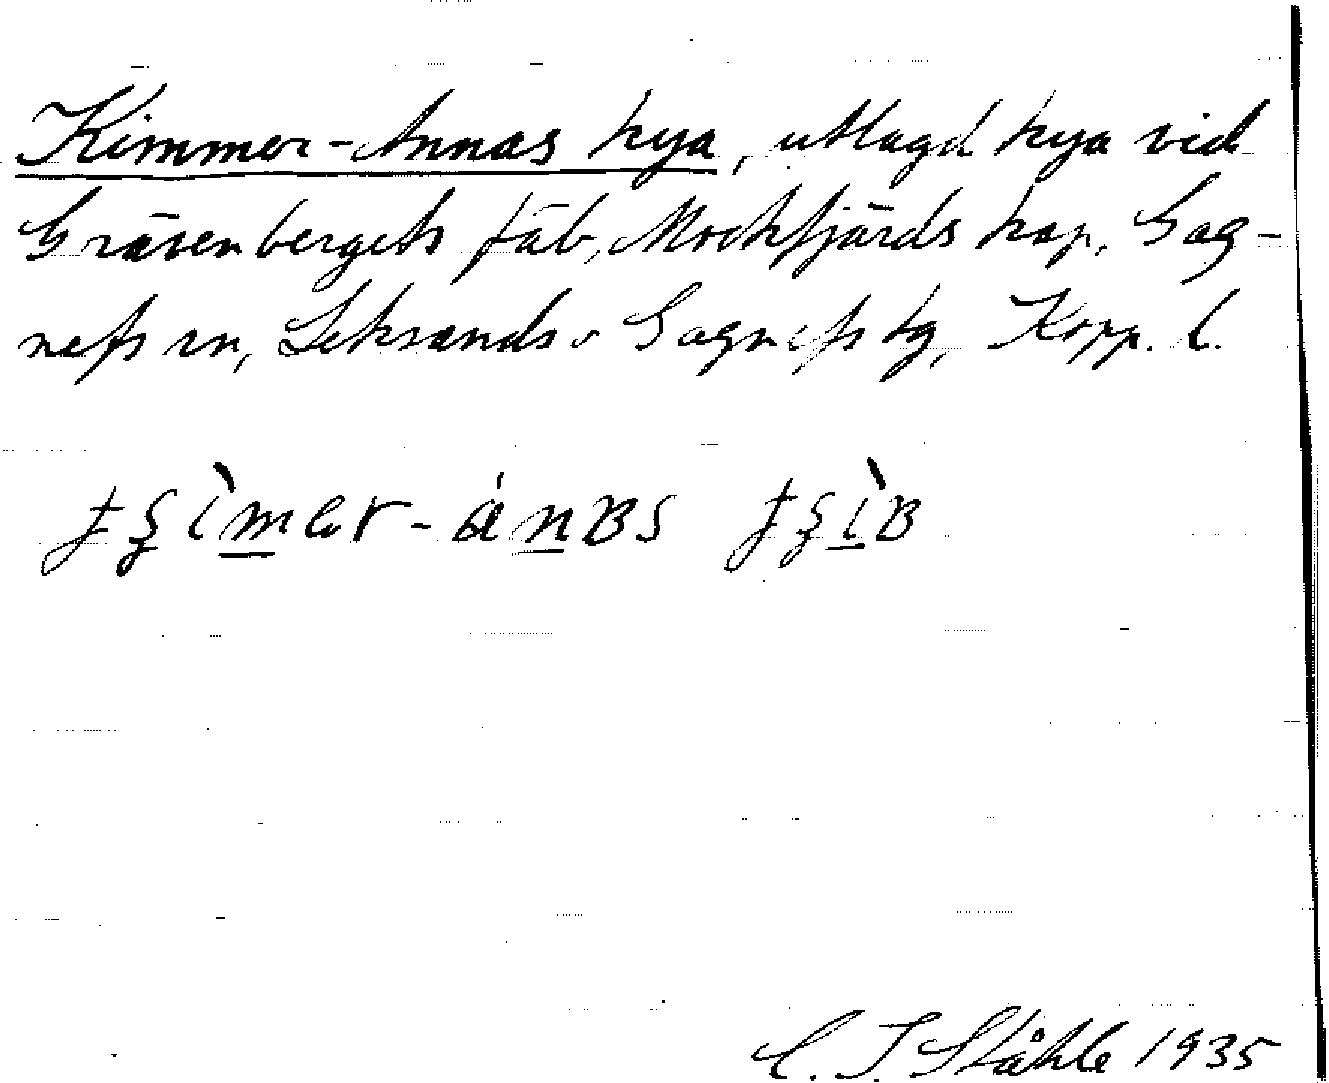 Kimmer-Annas kya, utlagd kya vid
Gräsenbergets fäb, Mockfjärds kap. Gag-
nefs sn, Leksands o Gagnefs tg, Kopp. l.
C. I. Ståhle 1935